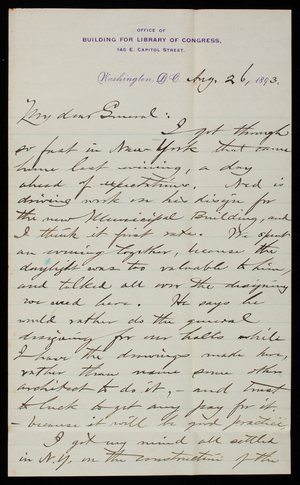 OFFICE OF
BUILDING FOR LIBRARY OF CONGRESS,
145 E. CAPITOL STREET.
Washington, D.C. Aug. 26, 1893.
My dear General:
I got through
so fast in New York that came
home last evening, a day
ahead of expectations. Ned is
driving work on his design for
the new Municipal Building, and
I think it first rate. We spent
an evening together, because the
daylight was too valuable to him,
and talked all over the designing
we need here. He says he
would rather do the general
designing for our halls while
I have the drawings made here,
rather than name some other
architect to do it, - and trust
to luck to get any pay for it,
- because it will be good practice.
I got my mind all settled
in N.Y. on the construction of the